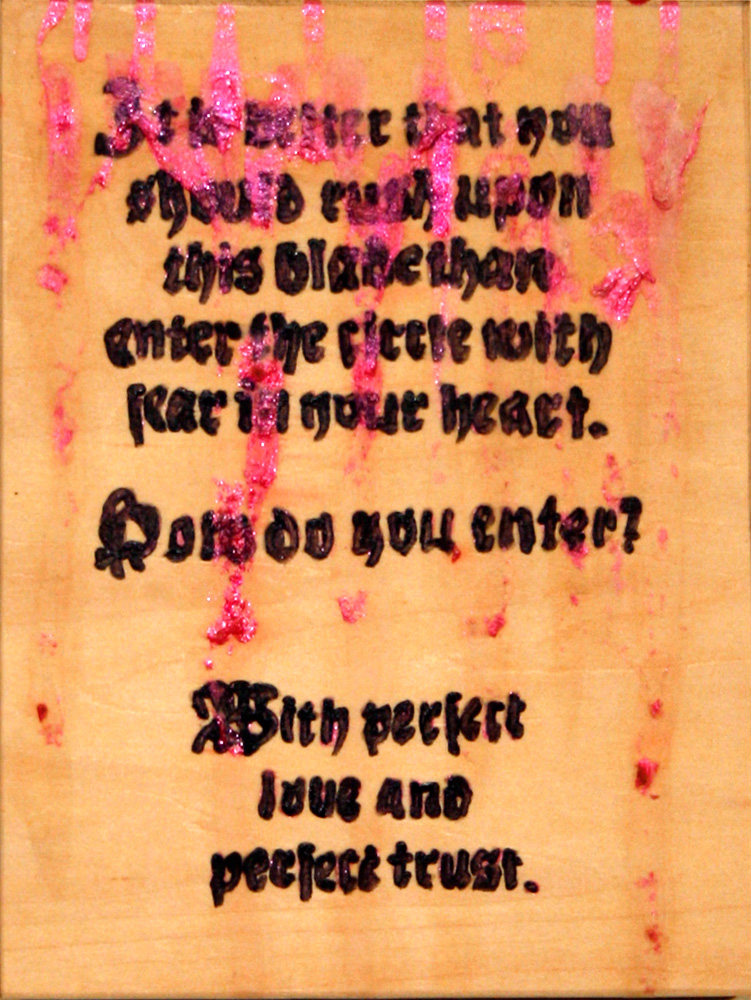 It is better that you
should rush upon
this blade than
enter the circle with
fear in your heart.
How do you enter?
With perfect
love and
perfect trust.